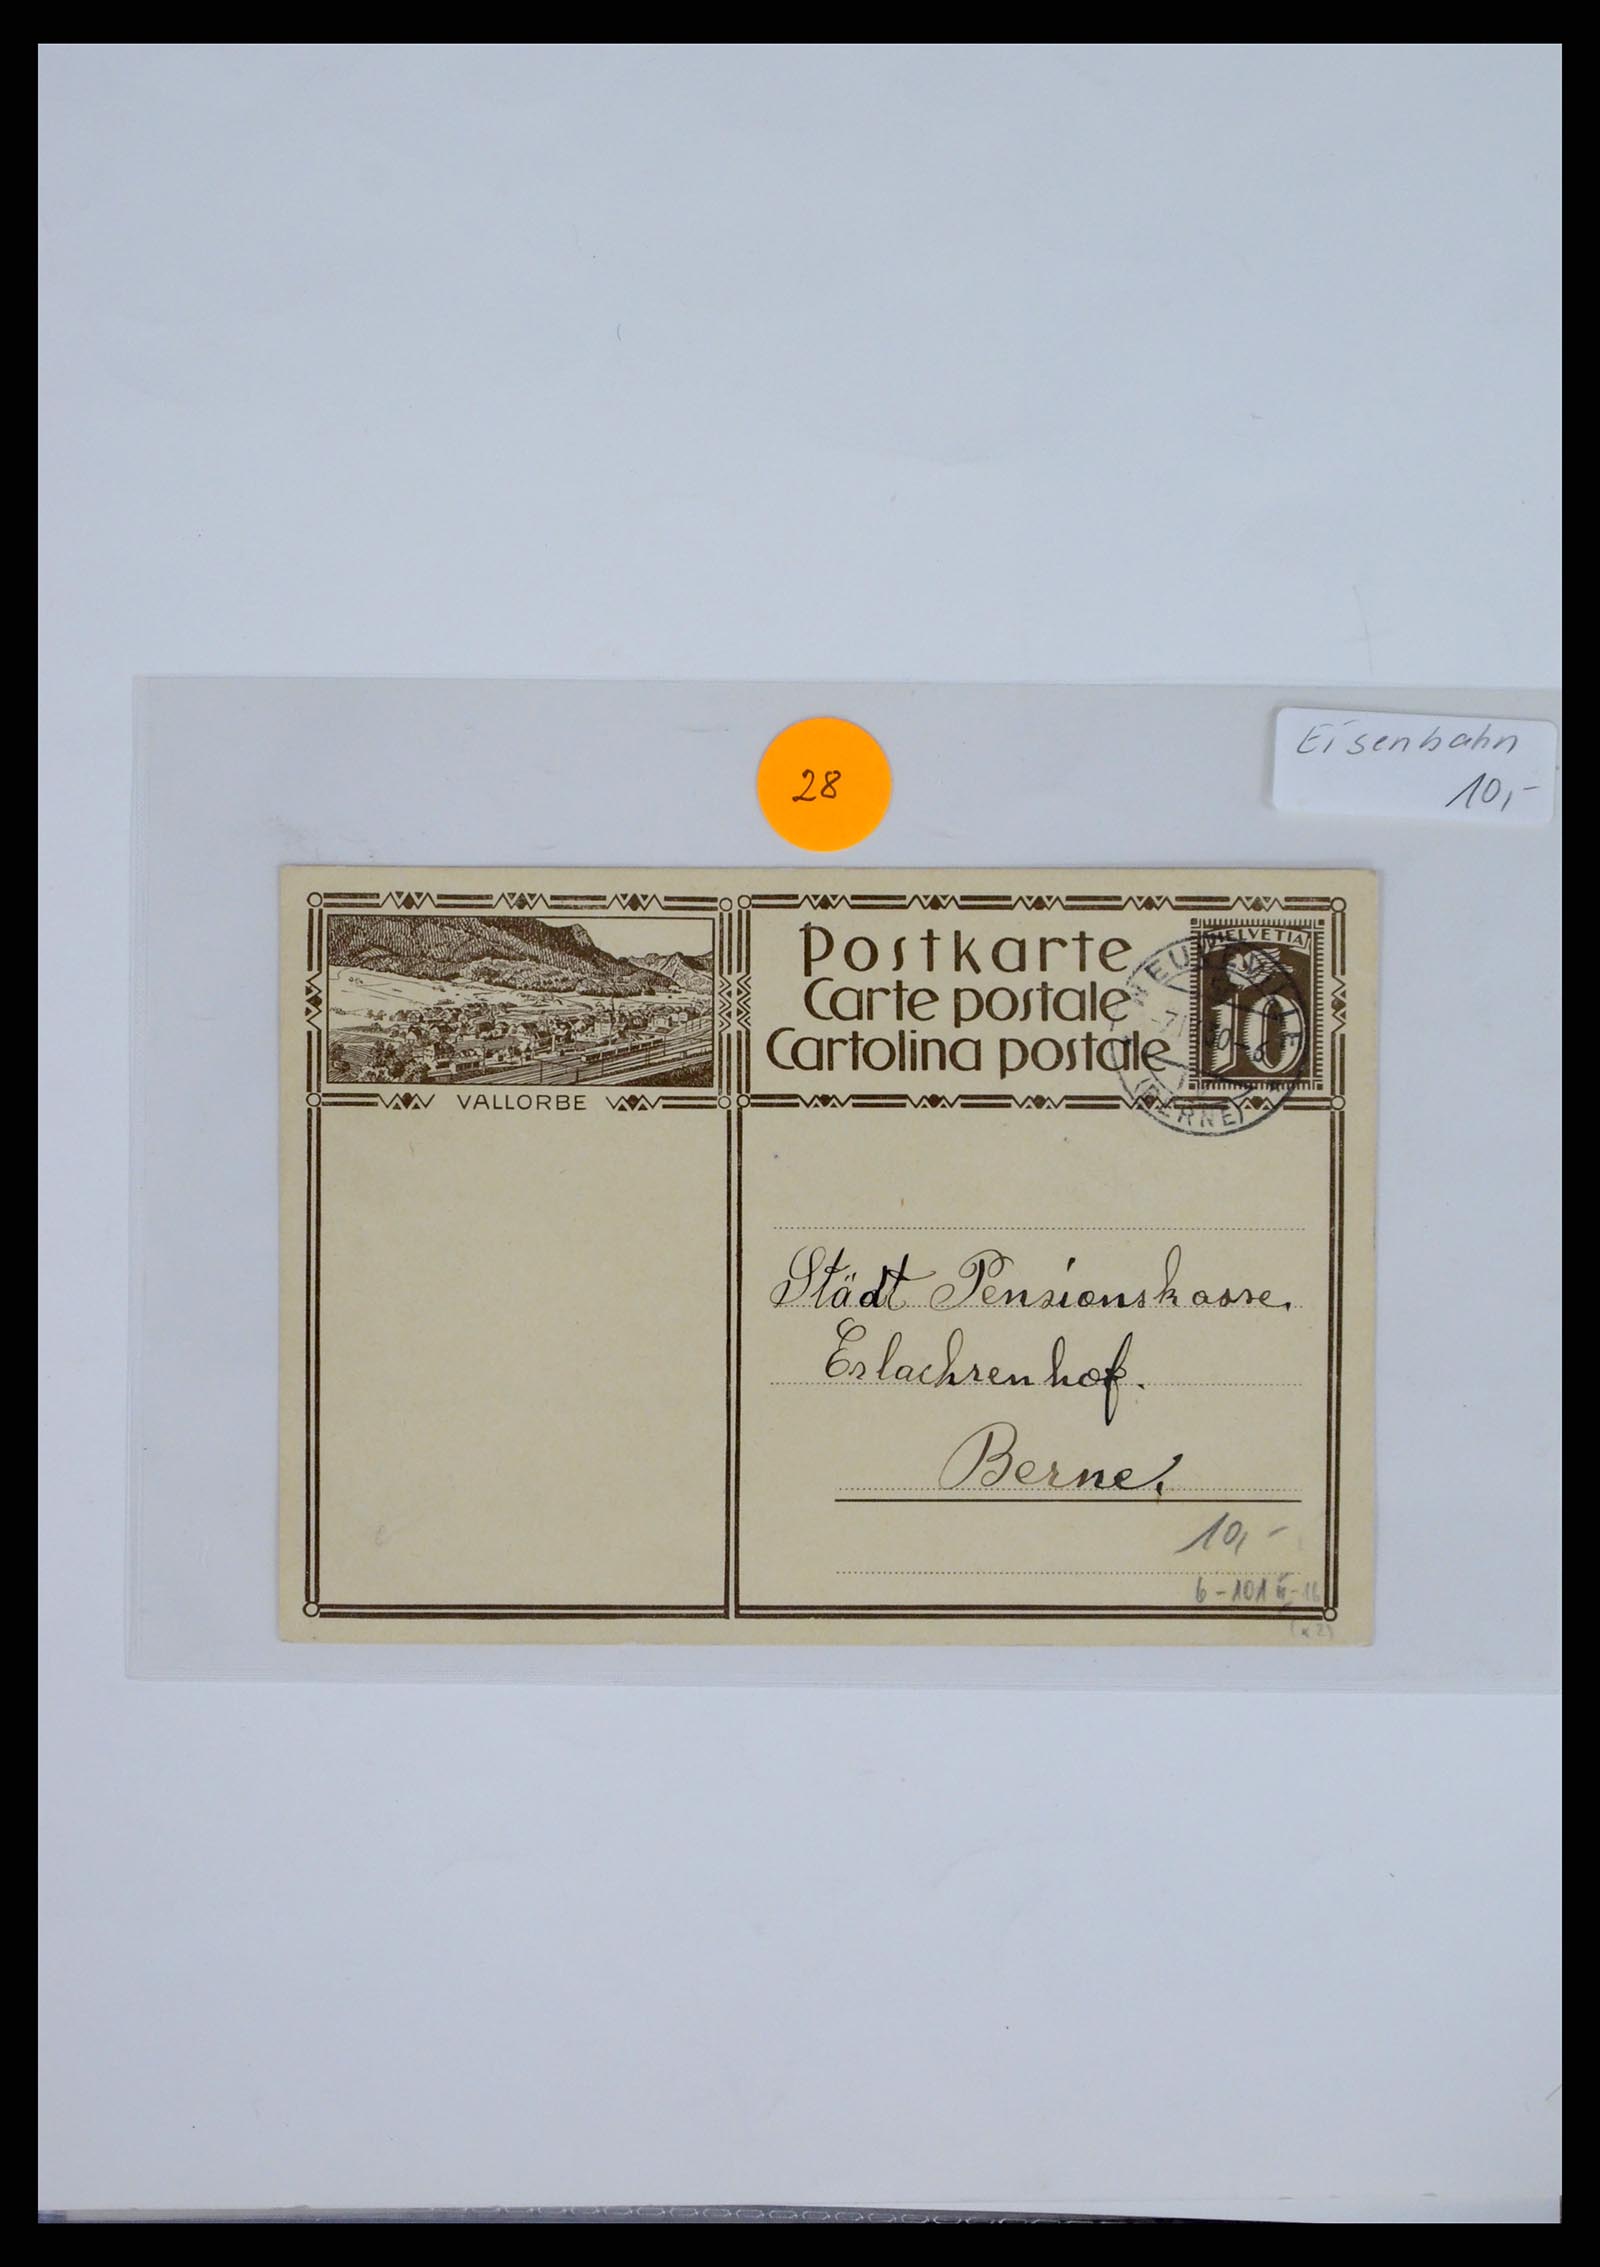 Eisenbahn
10,-
28
Postkarte
Carte postale
Cartolina postale
HELVETIA
10
NEUVEVILLE
(BERNE)
VALLORBE
Städt Pensionskasse.
Erlachrenhof.
Berne.
10,-
6-101